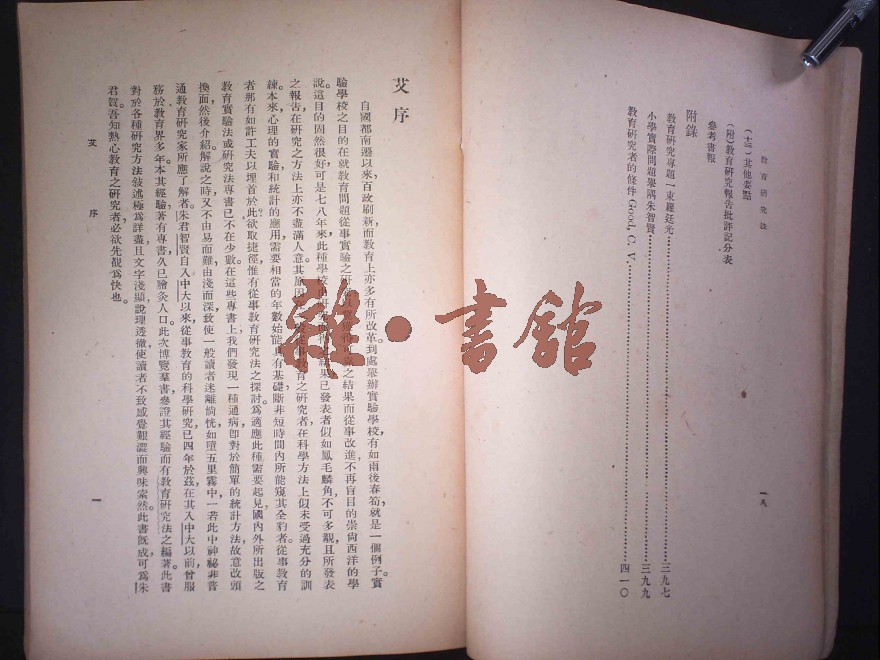 教育研究法
(十三)其他要點
(附)教育研究報告批評記分表
參考書報
附錄
教育研究專題一束羅廷光……三九七
小學實際問題舉隅朱智賢……三九九
教育研究者的條件 Good, C. V.……四一〇
一八
艾序
自國都南遷以來百政刷新而教育上亦多有所改革。到處舉辦實驗學校,有如雨後春筍,就是一個例子。實
驗學校之目的在就教育問題從事實驗之研究之結果而從事改進,不再盲目的崇尚西洋的學
說。這目的固然很好;可是七八年來此種學校已發表者似如鳳毛麟角,不可多覯。且所發表
之報告在研究之方法上亦不盡滿人意。其原因教育之研究者,在科學方法上似未受過充分的訓
練。本來心理的實驗和統計的應用,需要相當的年數始能具有基礎,斷非短時間內所能窺其全豹者。從事教育
者那有如許工夫以埋首於此?欲取捷徑,惟有從事教育研究法之探討。為適應此種需要起見,國內外所出版之
教育實驗法或研究法專書已不在少數。在這些專書上,我們發現一種通病,即對於簡單的統計方法故意改頭
換面然後介紹。解說之時,又不由易而難由淺而深,致使一般讀者迷離惝恍,如墮五里霧中,一若此中神秘非普
通教育研究家所應了解者。朱君智賢自入中大以來從事教育的科學研究,已四年於茲。在其入中大以前,曾服
務於教育界多年,本其經驗著有專書,久已膾灸人口。此次博覽羣書,參證其經驗而有教育研究法之編著。此書
對於各種研究方法敍述極為詳盡;且文字淺顯,說理透徹,使讀者不致感覺艱澀而興味索然。此書旣成,可為朱
君賀;吾知熱心教育之研究者必欲先覩為快也。
艾 序
一
雜·書館